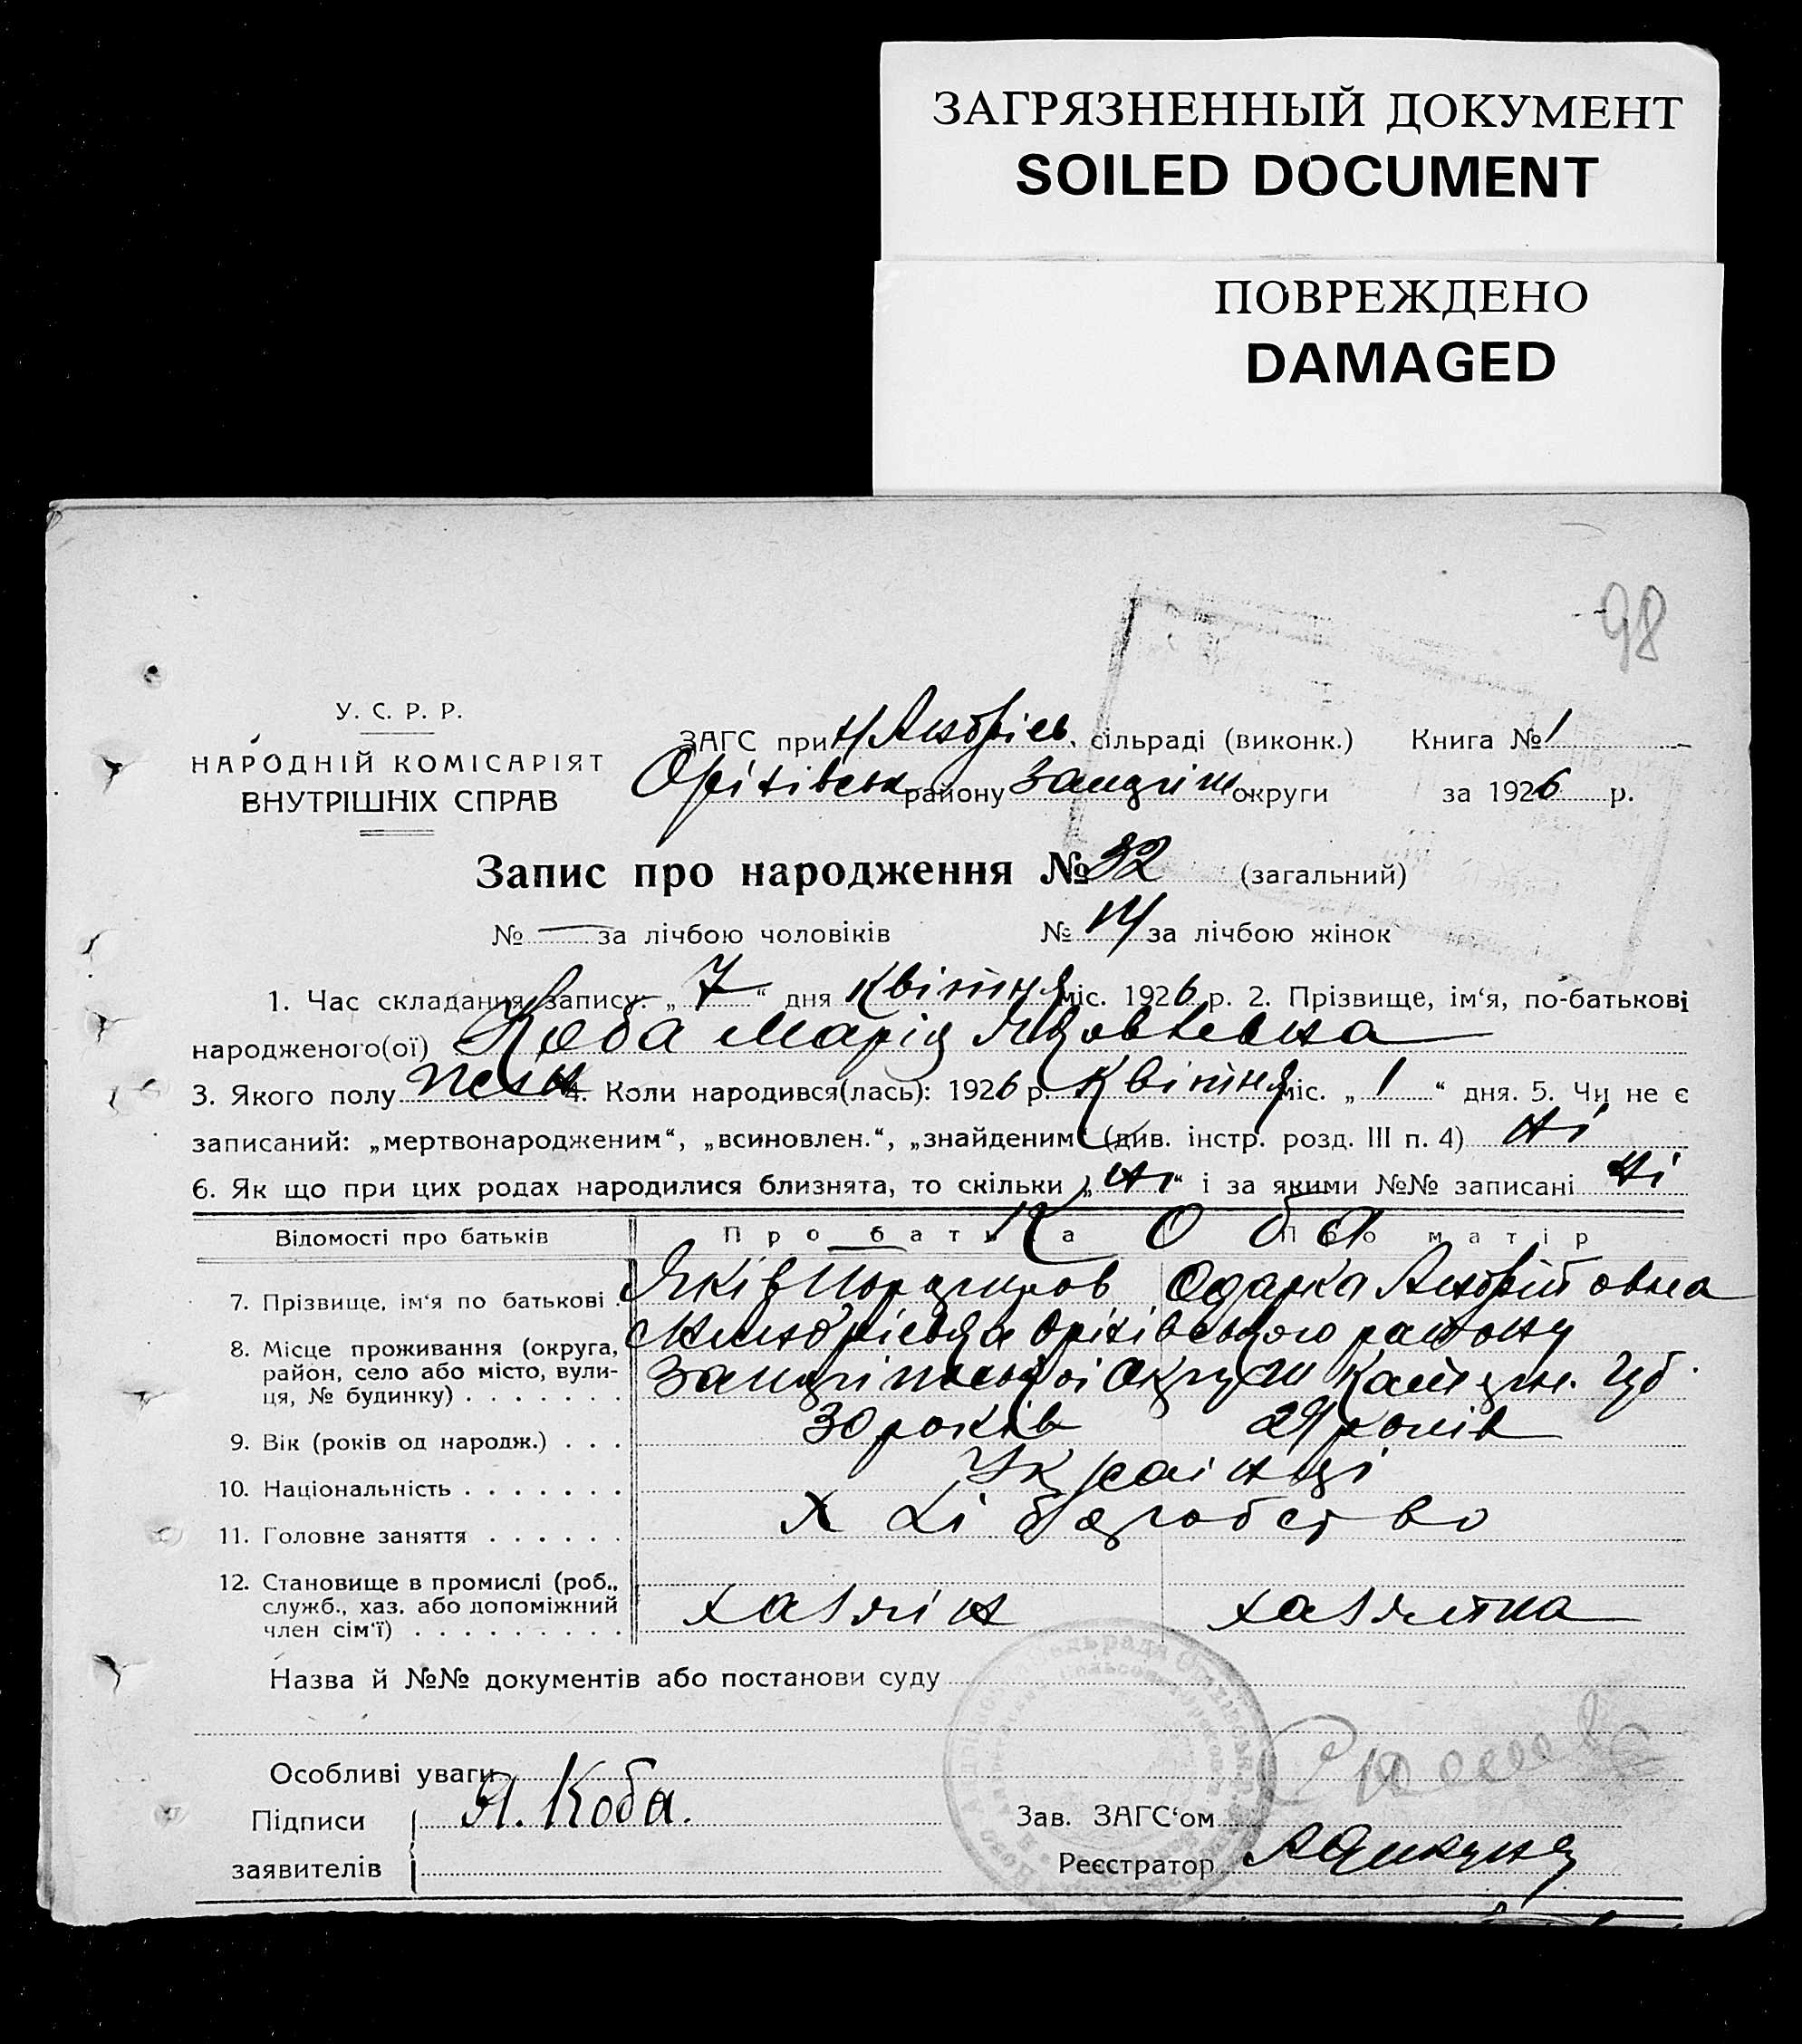 ЗАГРЯЗНЕННЫЙ ДОКУМЕНТ
SOILED DOCUMENT
ПОВРЕЖДЕНО
DAMAGED
98
У. С. Р. Р.
НАРОДНІЙ КОМІСАРІЯТ
ВНУТРІШНІХ СПРАВ
ЗАГС при Н Андрієв. сільраді (виконк.) Книга № 1
Оріхівськ району Запоріж округи за 1926 р.
Запис про народження № 32 (загальний)
№ — за лічбою чоловіків № 14 за лічбою жінок
1. Час складання запису: „ 7 “ дня квітня міс. 1926 р. 2. Прізвище, ім‘я, по-батькові
народженого(ої) Коба Марія Яковлевна
3. Якого полу жен 4. Коли народився(лась): 1926 р. квітня міс. „ 1 “ дня. 5. Чи не є
записаний: „мертвонародженим“, „всиновлен.“, „знайденим“ (див. інстр. розд. III п. 4) ні
6. Як що при цих родах народилися близнята, то скільки „ ні “ і за якими №№ записані ні
Відомості про батьків Про батька Про матір
Коба
7. Прізвище, ім‘я по батькові . Яків Порфиров Одарка Андрійовна
8. Місце проживання (округа, район, село або місто, вулиця, № будинку) . . . . . . .
Андрієвка Оріхівського району
Запоріжської Округи Катерин. Губ.
9. Вік (років од народж.) . . . 30 років 29 років
10. Національність . . . . . . . Українці
11. Головне заняття . . . . . . Хліборобство
12. Становище в промислі (роб., служб., хаз. або допоміжний член сім‘ї) . . . . . . . . . хазяін хазяйка
Назва й №№ документів або постанови суду
Особливі уваги
Підписи
заявителів
Я. Коба.
Зав. ЗАГС‘ом
Реєстратор